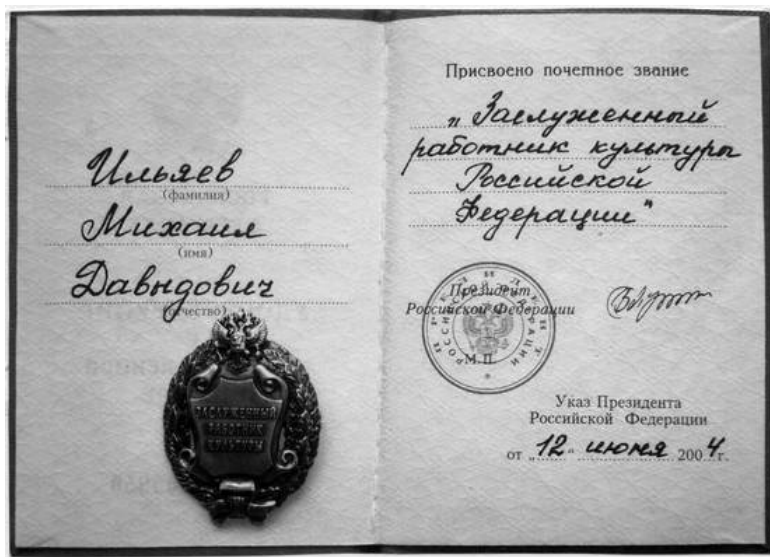 Ильяев
(фамилия)
Михаил
(имя)
Давыдович
(отчество)
ЗАСЛУЖЕННЫЙ
РАБОТНИК
КУЛЬТУРЫ
Присвоено почетное звание
„Заслуженный
работник культуры
Российской
Федерации"
Президент
Российской Федерации
ПРЕЗИДЕНТ
РОССИЙСКАЯ ФЕДЕРАЦИЯ
М.П.
Указ Президента
Российской Федерации
от „12" июня 2004г.